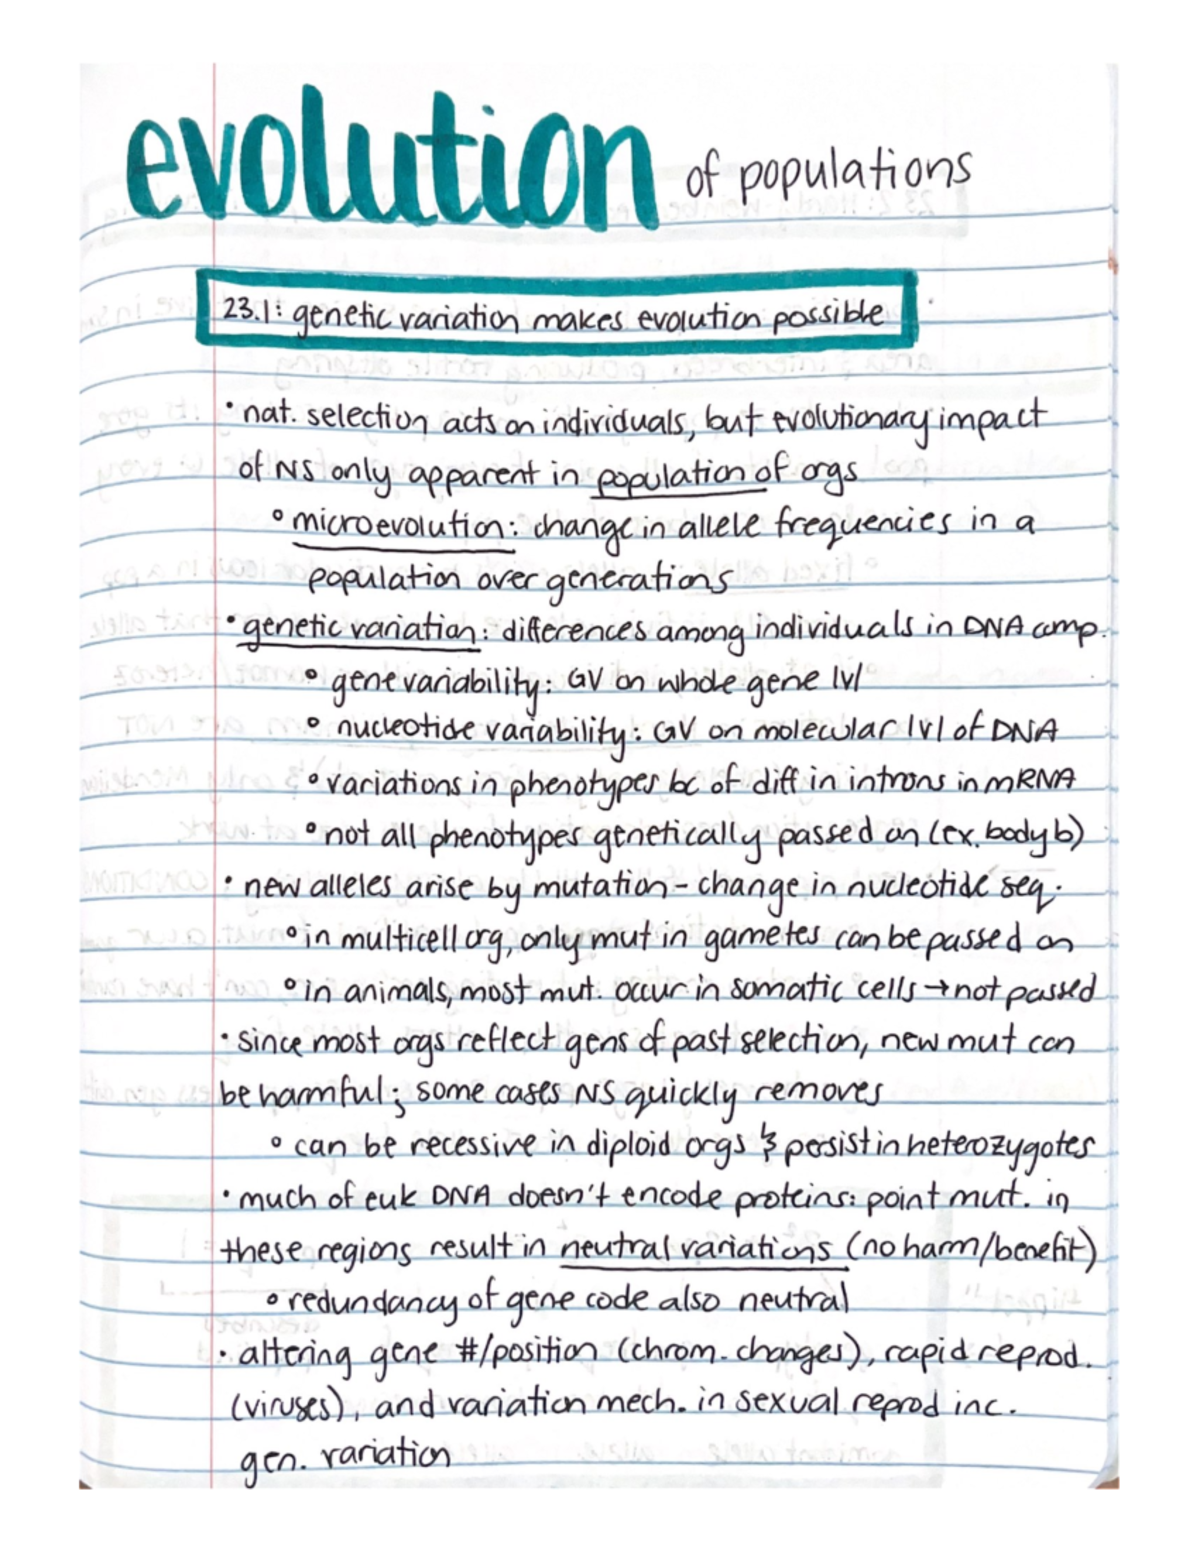 evolution of populations
23.1: genetic variation makes evolution possible
• nat. selection acts on individuals, but evolutionary impact
of NS only apparent in population of orgs
◦ microevolution: change in allele frequencies in a
population over generations
• genetic variation: differences among individuals in DNA comp.
◦ gene variability: GV on whole gene lvl
◦ nucleotide variability: GV on molecular lvl of DNA
◦ variations in phenotypes bc of diff in introns in mRNA
◦ not all phenotypes genetically passed on (ex. body b)
• new alleles arise by mutation - change in nucleotide seq.
◦ in multicell org, only mut in gametes can be passed on
◦ in animals, most mut. occur in somatic cells → not passed
• since most orgs reflect gens of past selection, new mut can
be harmful; some cases NS quickly removes
◦ can be recessive in diploid orgs & persist in heterozygotes
• much of euk DNA doesn't encode proteins: point mut. in
these regions result in neutral variations (no harm/benefit)
◦ redundancy of gene code also neutral
• altering gene #/position (chrom. changes), rapid reprod.
(viruses), and variation mech. in sexual reprod inc.
gen. variation